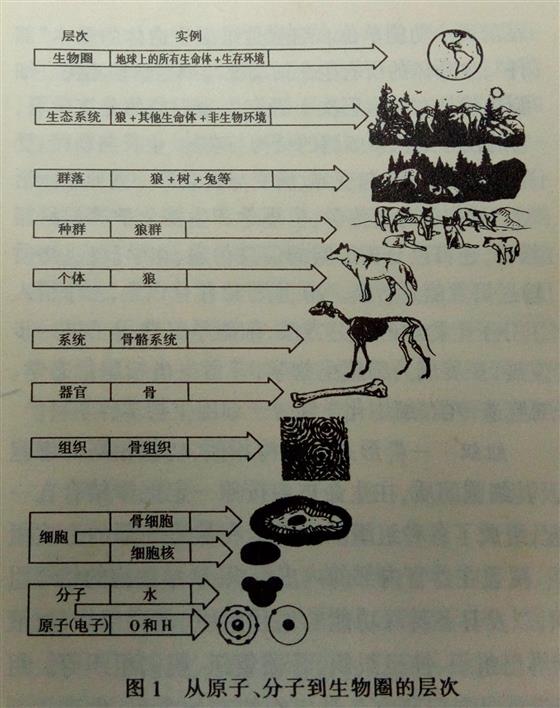 层次 实例
生物圈 地球上的所有生命体+生存环境
生态系统 狼+其他生命体+非生物环境
群落 狼+树+兔等
种群 狼群
个体 狼
系统 骨骼系统
器官 骨
组织 骨组织
细胞 骨细胞
细胞核
分子 水
原子(电子) O和H
图1 从原子、分子到生物圈的层次